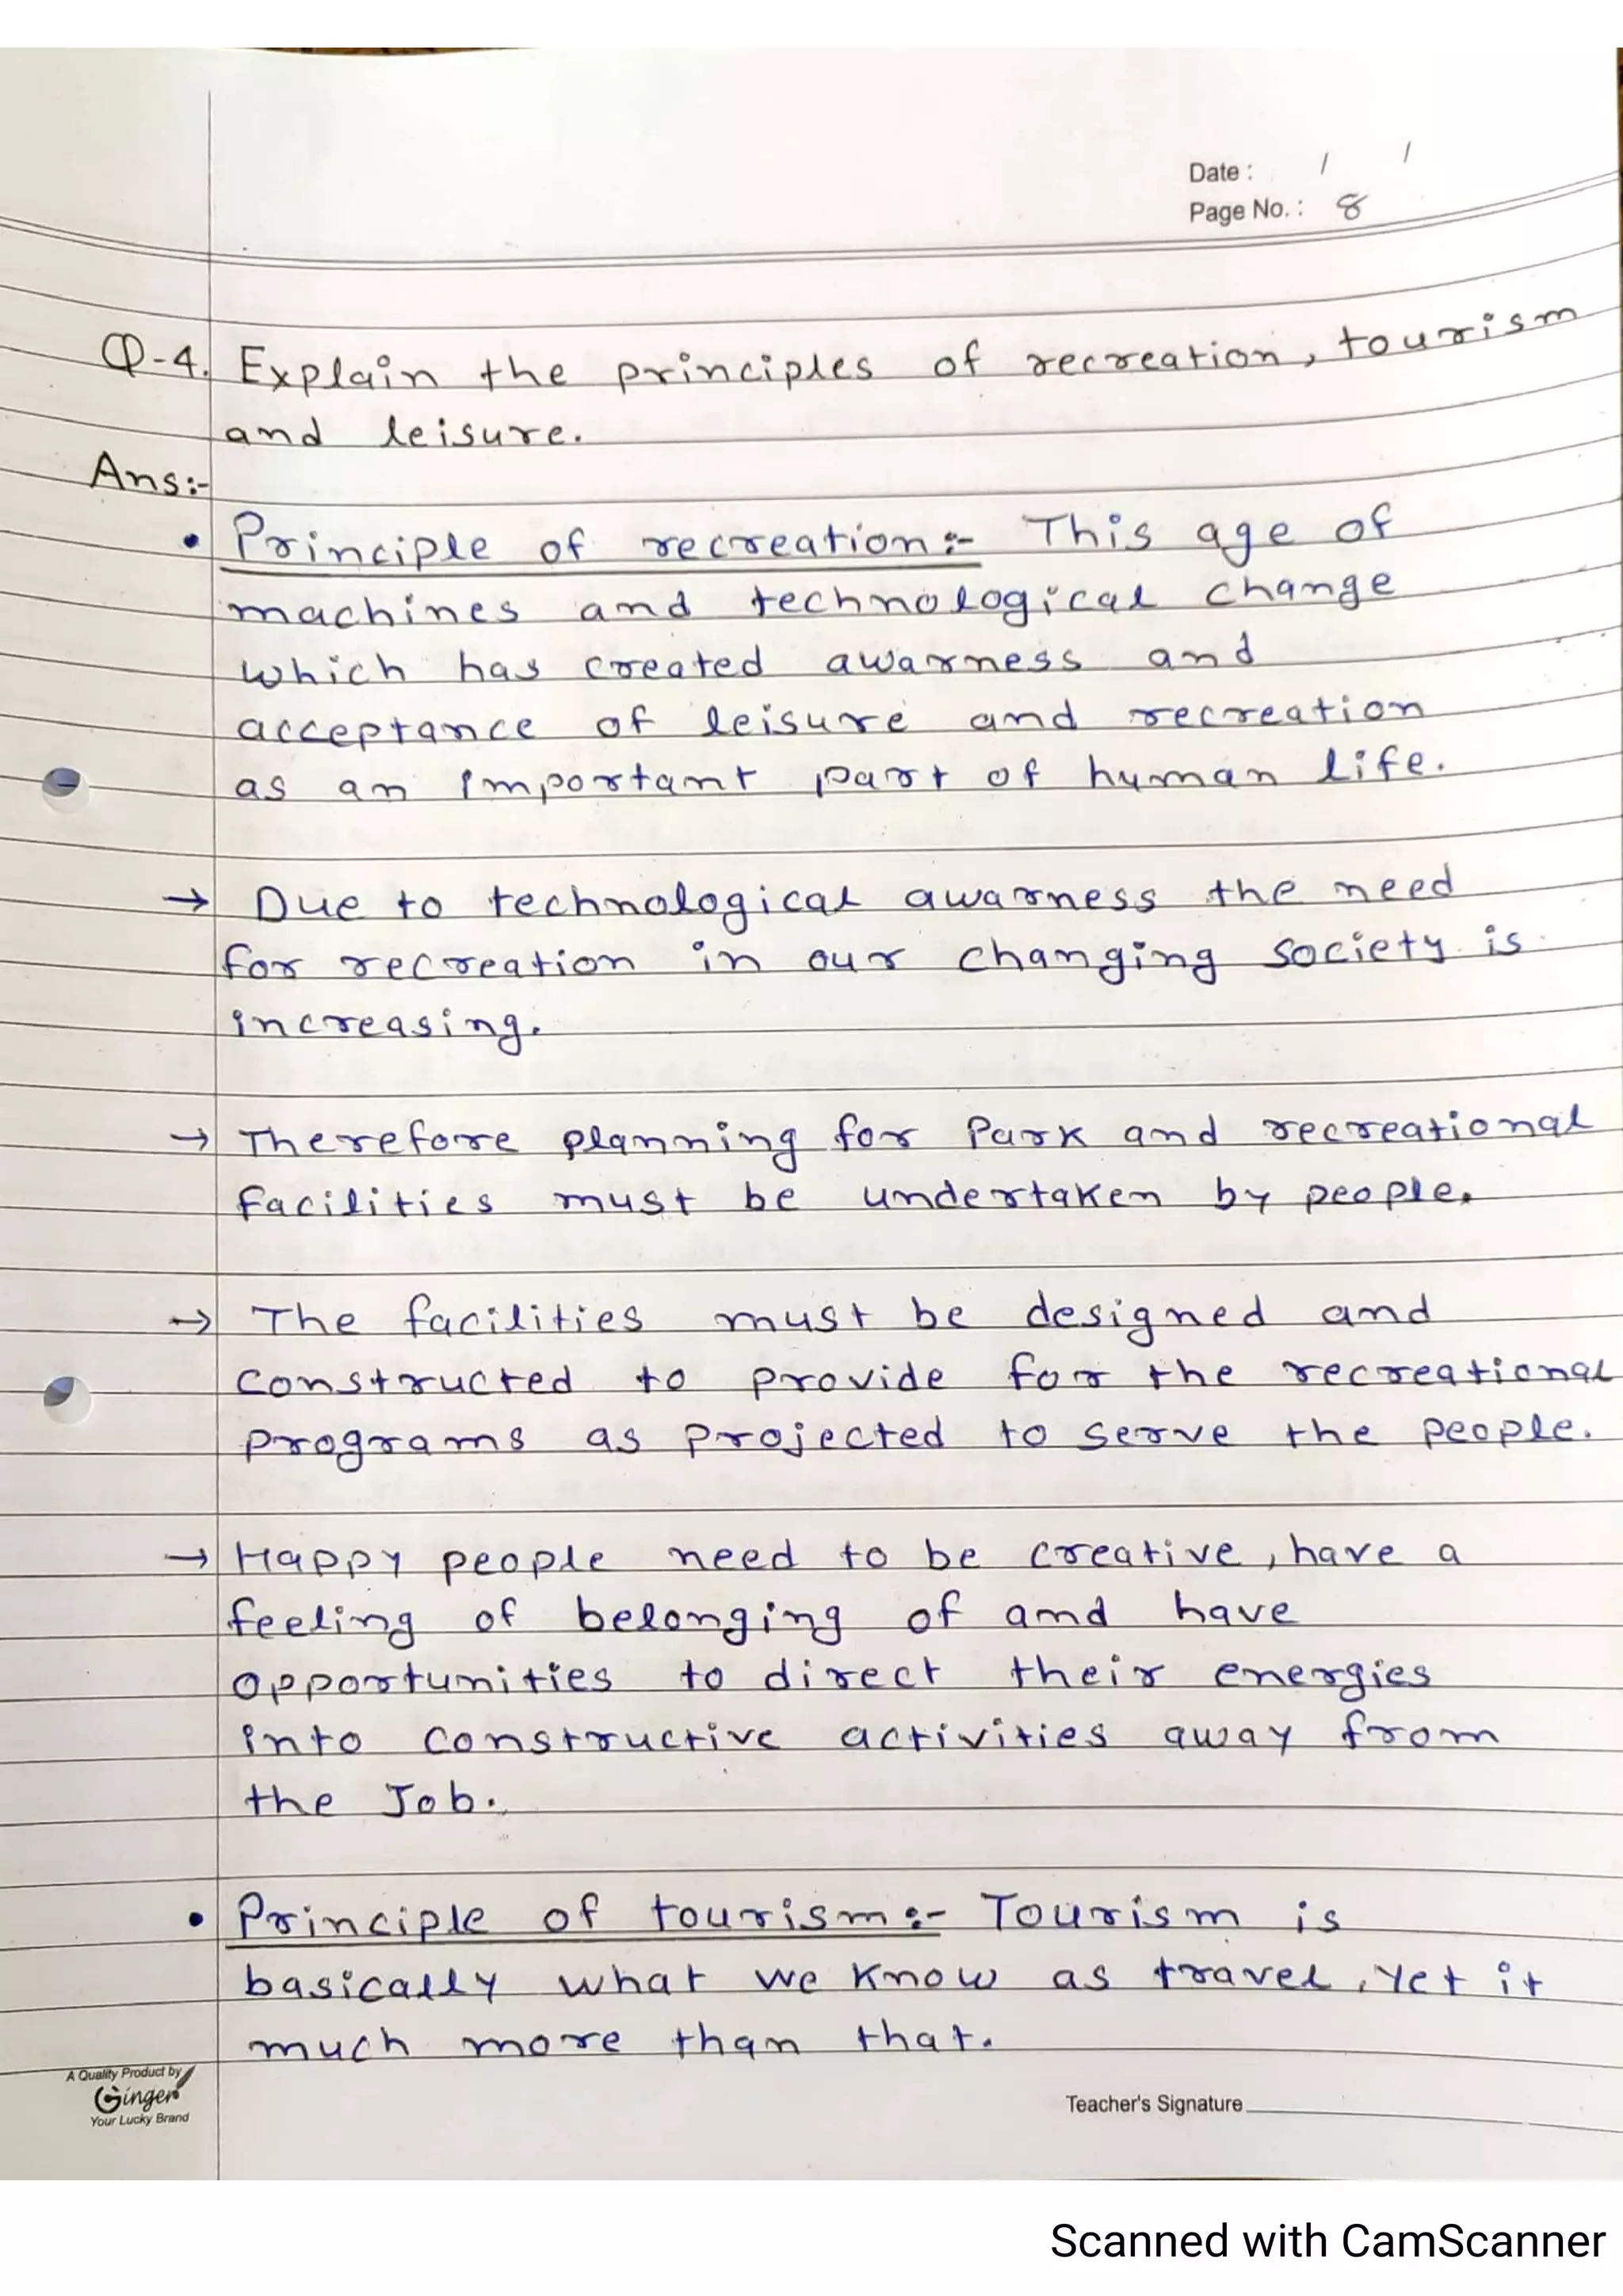 Date : / /
Page No. : 8
Q-4. Explain the principles of recreation, tourism
and leisure.
Ans:-
• Principle of recreation:- This age of
machines and technological change
which has created awarness and
acceptance of leisure and recreation
as an important part of human life.
→ Due to technological awarness the need
for recreation in our changing society is
increasing.
→ Therefore planning for Park and recreational
facilities must be undertaken by people.
→ The facilities must be designed and
constructed to provide for the recreational
programs as projected to serve the people.
→ Happy people need to be creative, have a
feeling of belonging of and have
opportunities to direct their energies
into constructive activities away from
the Job.
• Principle of tourism:- Tourism is
basically what we know as travel, yet it
much more than that.
A Quality Product by
Ginger
Your Lucky Brand
Teacher's Signature
Scanned with CamScanner